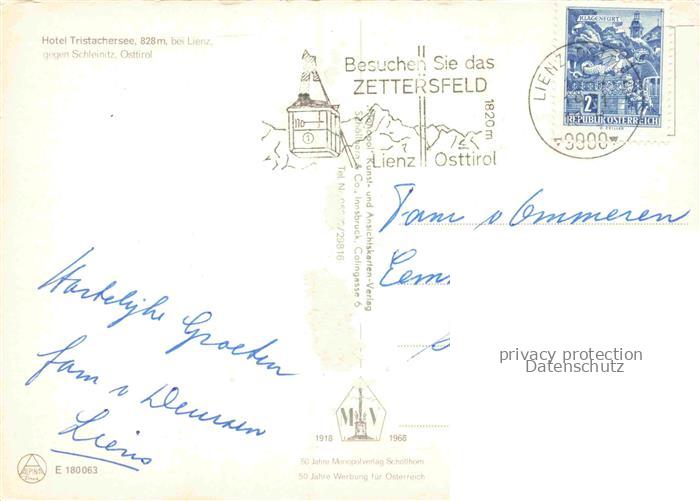 Hotel Tristachersee, 828m, bei Lienz,
gegen Schleinitz, Osttirol
Besuchen Sie das
ZETTERSFELD
1820m
Lienz Osttirol
LIENZ
9900
KLAGENFURT
2S
REPUBLIK ÖSTERREICH
"Monopol" Kunst- und Ansichtskarten-Verlag
Schöllhorn & Co., Innsbruck, Colingasse 6
Tel. Nr.
/29816
Fam v Ommeren
Eem
privacy protection
Datenschutz
Hartelijke Groeten
fam v Deursen
Liens
M V
1918 1968
50 Jahre Monopolverlag Schöllhorn
50 Jahre Werbung für Österreich
E 180063